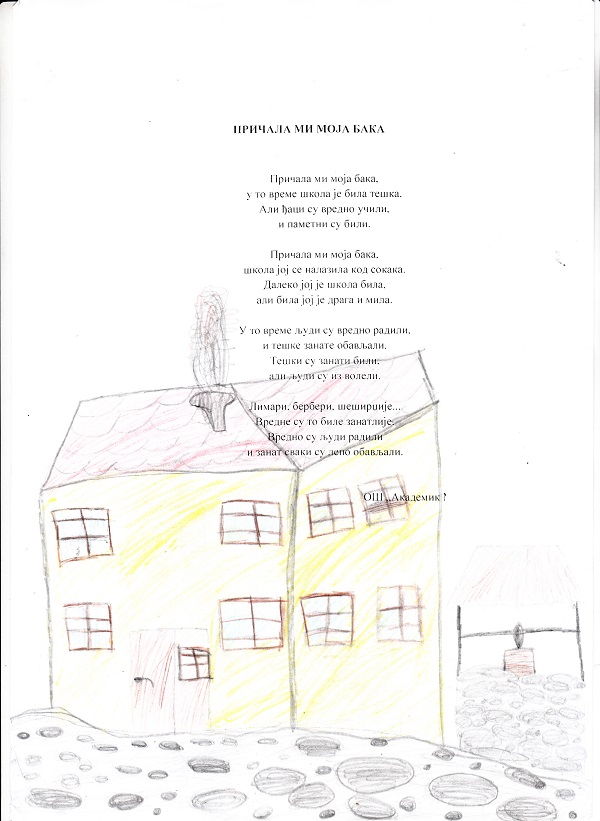 ПРИЧАЛА МИ МОЈА БАКА
Причала ми моја бака,
у то време школа је била тешка.
Али ђаци су вредно учили,
и паметни су били.
Причала ми моја бака,
школа јој се налазила код сокака.
Далеко јој је школа била,
али била јој је драга и мила.
У то време људи су вредно радили,
и тешке занате обављали.
Тешки су занати били,
али људи су из волели.
Лимари, бербери, шеширџије...
Вредне су то биле занатлије.
Вредно су људи радили
и занат сваки су лепо обављали.
ОШ „Академик